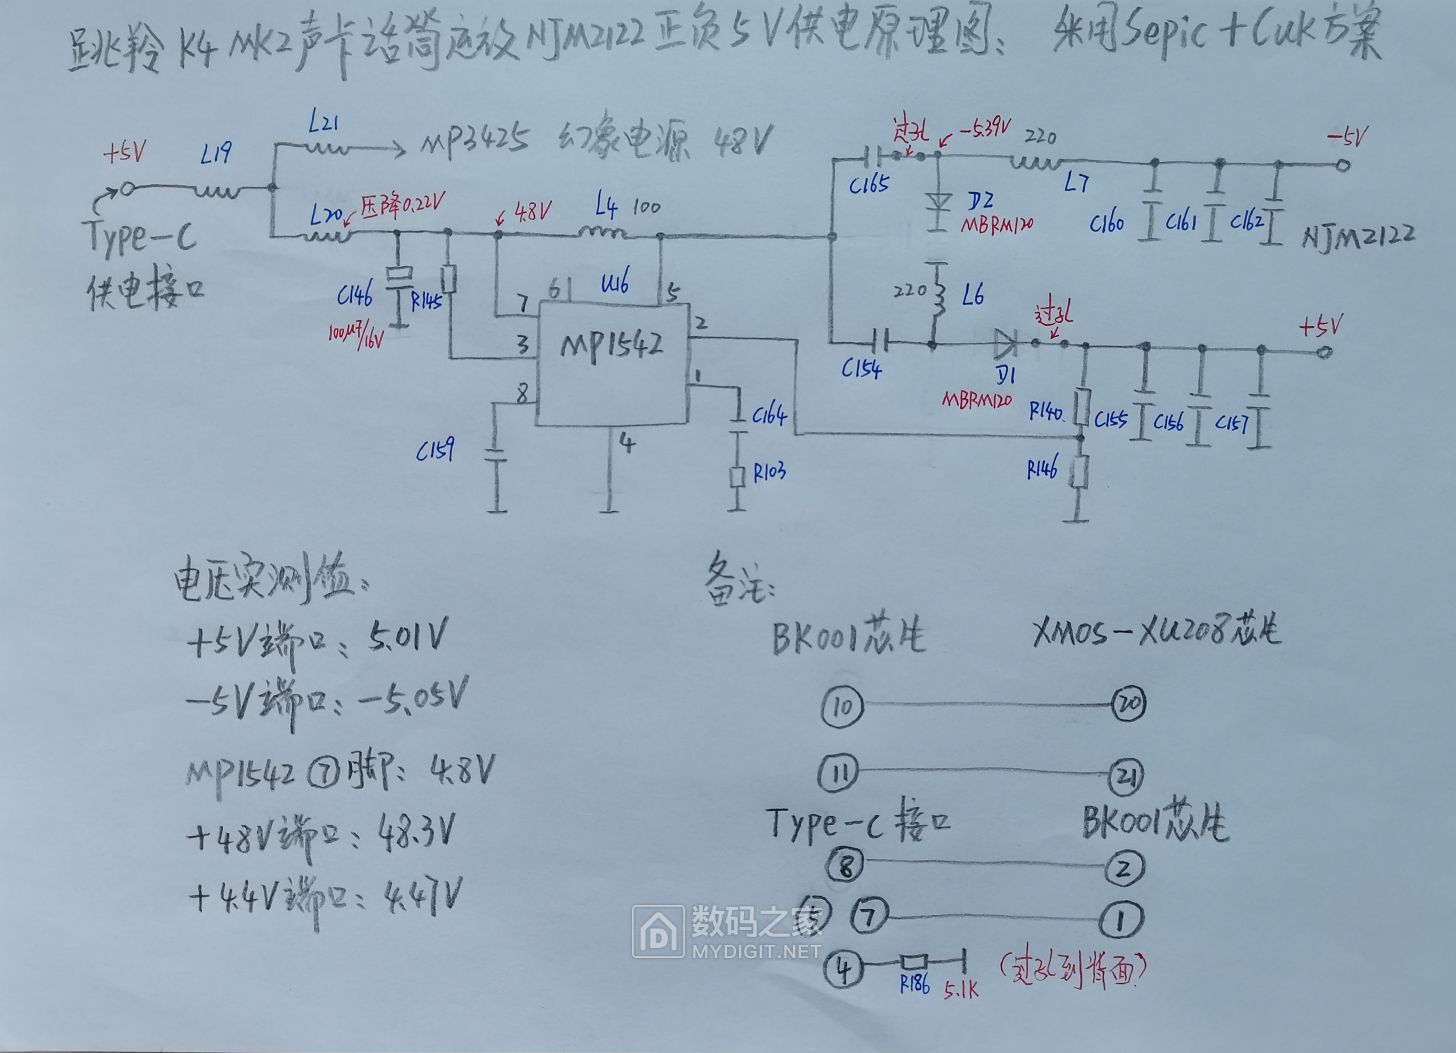 跳羚K4 MK2声卡话筒运放NJM2122正负5V供电原理图： 采用Sepic+Cuk方案
+5V
L19
L21
MP3425 幻象电源 48V
Type-C
供电接口
L20
压降0.22V
4.8V
L4 100
C165
过孔
-5.39V
220
L7
-5V
D2
MBRM120
C160
C161
C162
NJM2122
C146
100μF/16V
R145
6
U16
5
7
3
8
MP1542
2
1
4
C159
C164
R103
220
L6
C154
D1
MBRM120
过孔
+5V
R140
C155
C156
C157
R146
电压实测值：
+5V端口：5.01V
-5V端口：-5.05V
MP1542 ⑦脚：4.8V
+48V端口：48.3V
+4.4V端口：4.47V
备注：
BK001芯片 XMOS-XU208芯片
⑩ ⑳
⑪ ㉑
Type-C接口 BK001芯片
⑧ ②
⑤ ⑦ ①
④ R186 5.1K (过孔到背面)
数码之家
MYDIGIT.NET